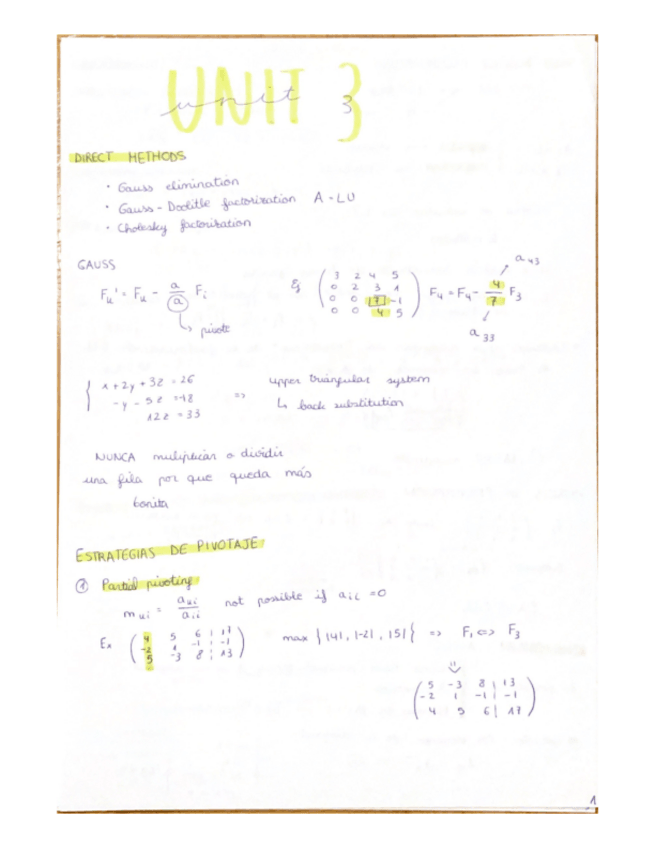 UNIT 3
unit 3
DIRECT METHODS
· Gauss elimination
· Gauss - Doolitle factorization A - LU
· Cholesky factorization
GAUSS
Fk' = Fk - a/a Fi
↳ pivote
Eg ( 3 2 4 5
0 2 3 1
0 0 7 -1
0 0 4 5 ) F4 = F4 - 4/7 F3
a 43
a 33
{ x + 2y + 3z = 26
-y - 5z = -18
12z = 33
=> upper triangular system
↳ back substitution
NUNCA multiplicar o dividir
una fila por que queda más
bonita
ESTRATEGIAS DE PIVOTAJE
① Partial pivoting
m ki = a ki / a ii not possible if a ii = 0
Ex ( 4 5 6 | 17
-2 1 -1 | -1
5 -3 8 | 13 ) max { |4|, |-2|, |5| } => F1 <=> F3
( 5 -3 8 | 13
-2 1 -1 | -1
4 5 6 | 17 )
1